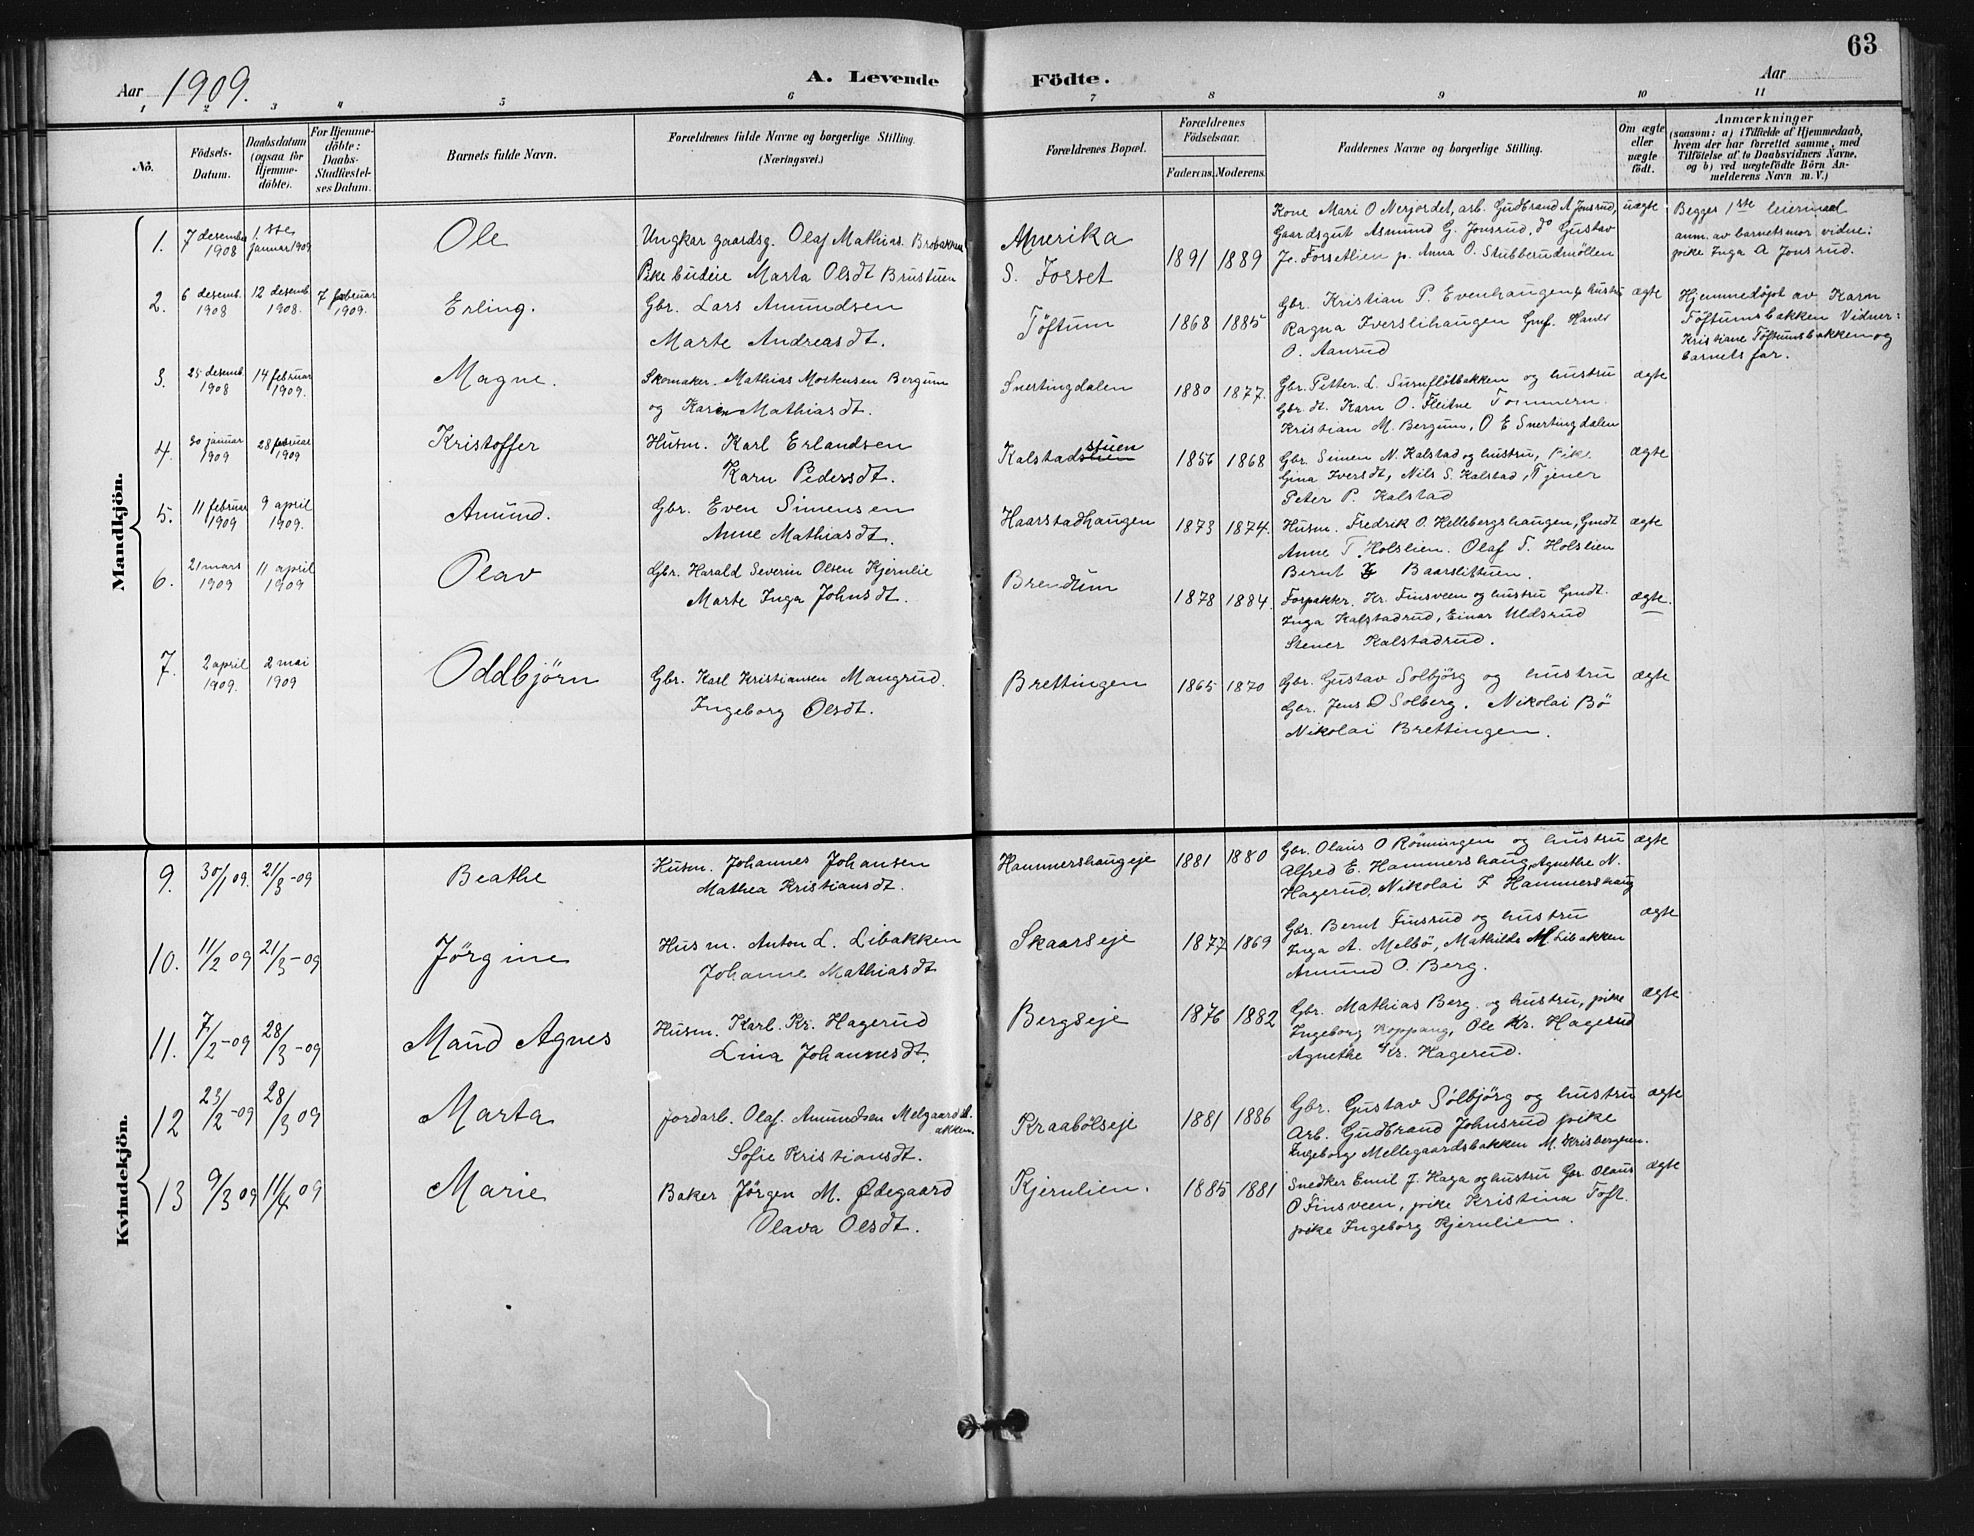 63
Aar 1909.
A. Levende Födte.
Aar
1 2 3 4 5 6 7 8 9 10 11
No.
Födsels-Datum.
Daabsdatum (ogsaa for Hjemme-döbte).
For Hjemme-döbte: Daabs-Stadfæstel-ses Datum.
Barnets fulde Navn.
Forældrenes fulde Navne og borgerlige Stilling. (Næringsvei.)
Forældrenes Bopæl.
Forældrenes Födselsaar.
Faderens. Moderens.
Faddernes Navne og borgerlige Stilling.
Om ægte eller uægte födt.
Anmærkninger (saasom: a) i Tilfælde af Hjemmedaab, hvem der har forrettet samme, med Tilföielse af to Daabsvidners Navne, og b) ved uægtefödte Börn An-melderens Navn m. V.)
Mandkjön.
1. 7 desember 1908 1ste januar 1909 Ole
Ungkar gaardsg. Olaf Mathias Brobakken
Pike budeie Marta Olsdt Brustuen
Amerika
S. Fosset
1891 1889
Kone Mari O Nerjordet, arb. Gudbrand A Jonsrud,
Gaardsgut Asmund G. Jonsrud, do Gustav
Jo. Forsetlien p. Anna O. Stubberudsmöllen
uægte
Begges 1ste leiermaal
anm. av barnets mor vidne:
pike Inga A Jonsrud.
2. 6 desemb. 1908 12 desemb 1908. 7 februar 1909. Erling.
Gbr. Lars Amundsen
Marte Andreasdt.
Töftum
1868 1885
Gbr. Kristian P. Evenhaugen & hustru
Ragna Iverslihaugen Gmf. Hans
O. Aanrud
ægte
Hjemmedöpt av Karn
Töftumsbakken Vidner:
Kristiane Töftumsbakken og
barnets far.
3. 25 desemb. 1908 14 februar 1909. Magne.
Skomaker. Mathias Mortensen Bergum
og Karen Mathiasdt.
Snertingdalen
1880 1877.
Gbr. Petter. L. Surnflötbakken og hustru
Gbr. dt. Karn O. Fleitne Tommern.
Kristian M. Bergum, O E Snertingdalen
ægte
4. 30 januar 1909 28 februar 1909 Kristoffer
Husm. Karl Erlandsen
Karn Pedersdt.
Kalstadstuen
1856 1868
Gbr. Simen N. Kalstad og hustru, Pike
Gina Iversdt, Nils S. Kalstad, Tjener
Peter P. Kalstad
ægte
5. 11 februar 1909 9 april 1909. Amund.
Gbr. Even Simensen
Anne Mathiasdt.
Haarstadhaugen
1873 1874.
Husm. Fredrik O. Hellebergshaugen, Gmdt
Anne T. Holslien. Olaf T. Holslien
Bernt Baarslistuen.
ægte
6. 21 mars 1909 11 april 1909 Olav
Gbr. Harald Severin Olsen Kjernlie
Marte Inga Johnsdt.
Brendlum
1878 1884.
Forpakkr. Kr. Finsveen og hustru Gmdt.
Inga Kalstadrud, Einar Uldsrud
Stener Kalstadrud.
ægte.
7. 2 april 1909. 2 mai 1909 Oddbjörn
Gbr. Karl Kristiansen Mangrud.
Ingeborg Olsdt.
Brettingen
1865 1870
Gbr. Gustav Solbjörg og hustru
Gbr. Jens O Solberg. Nikolai Bö
Nikolai Brettingen.
ægte
Kvindekjön.
9. 30/1 09. 21/3-09 Beathe
Husm. Johannes Johansen
Mathea Kristiansdt.
Hammershaugeje
1881 1880
Gbr. Olaus O Rönningen og hustru
Alfred E. Hammershaug, Agnethe N.
Hagerud, Nikolai F Hammershaug
ægte
10. 11/2 09 21/3-09 Jörgine
Husm. Anton L. Libakken
Johanne Mathiasdt
Skaarseje
1877 1869
Gbr. Bernt Finsrud og hustru
Inga A. Melbö, Mathilde M Libakken
Amund O. Berg.
ægte
11. 7/2-09 28/3-09 Maud Agnes
Husm. Karl. Kr. Hagerud
Lina Johannesdt.
Bergseje
1876 1882
Gbr. Mathias Berg. og hustru, pike
Ingeborg Koppang, Ole Kr. Hagerud
Agnethe Kr. Hagerud.
ægte
12 23/2-09 28/3 09 Marta
Jordarb. Olaf. Amundsen Melgaardsb.
akken.
Sofie Kristiansdt.
Kraabölseje
1881 1886
Gbr. Gustav Sölbjörg og hustru
Arb. Gudbrand Johnsrud pike
Ingeborg Mellegaardsbakken M. Krisbergeen.
ægte
13 9/3 09 11/4 09 Marie
Baker Jörgen M. Ødegaard
Olava Olsdt.
Kjernlien.
1885 1881
Snedker Emil J. Haga og hustru Gbr. Olaus
O Finsveen, pike Kristina Toft.
pike Ingeborg Kjernlien.
ægte